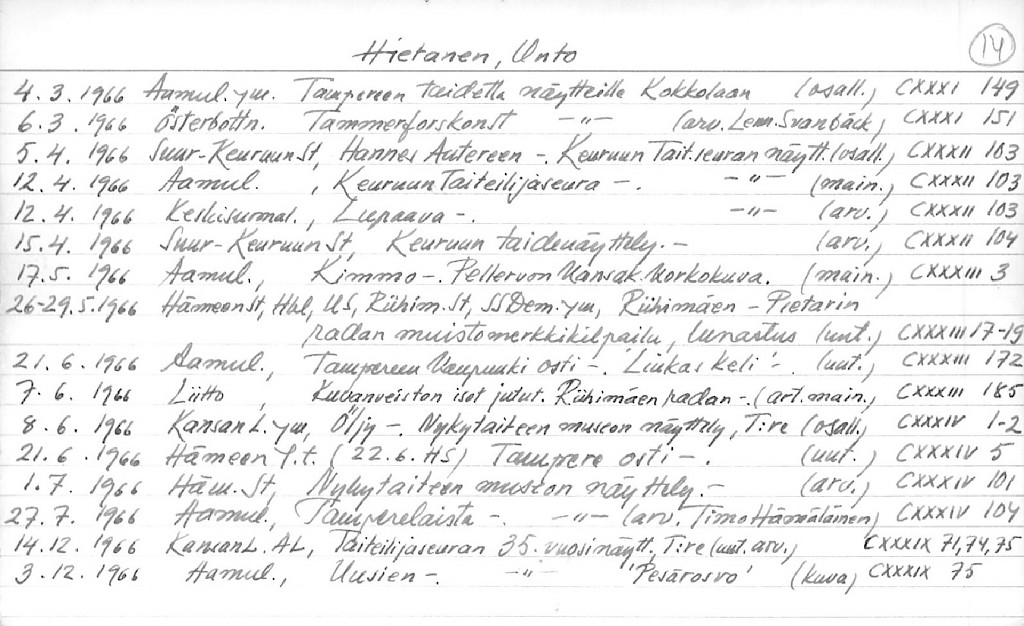 14
Hietanen, Unto
4.3.1966 Aamul. ym. Tampereen taidetta näytteille Kokkolaan (osall.) CXXXI 149
6.3.1966 Österbottn. Tammerforskonst -"- (arv. Lenn. Svanbäck) CXXXI 151
5.4.1966 Suur-Keuruun St, Hannes Autereen -. Keuruun Tait.seuran näytt. (osall.) CXXXII 103
12.4.1966 Aamul. , Keuruun Taiteilijaseura -. -"- (main.) CXXXII 103
12.4.1966 Keskisuomal., Lupaava -. -"- (arv.) CXXXII 103
15.4.1966 Suur-Keuruun St, Keuruun taidenäyttely.- (arv.) CXXXII 104
17.5.1966 Aamul., Kimmo -. Pellervon Kansak. korkokuva. (main.) CXXXIII 3
26-29.5.1966 Hämeen St, Hbl, US, Riihim. St, SSDem. ym, Riihimäen - Pietarin
radan muistomerkkikilpailu, lunastus (uut.) CXXXIII 17-19
21.6.1966 Aamul., Tampereen Kaupunki osti -. 'Liukas keli' -. (uut.) CXXXIII 172
7.6.1966 Liitto , Kuvanveiston isot jutut. Riihimäen radan -. (art. main.) CXXXIII 185
8.6.1966 Kansan L. ym, Öljy -. Nykytaiteen museon näyttely, T:re (osall.) CXXXIV 1-2
21.6.1966 Hämeen Y.t. (22.6. HS) Tampere osti -. (uut.) CXXXIV 5
1.7.1966 Häm. St, Nykytaiteen museon näyttely.- (arv.) CXXXIV 101
27.7.1966 Aamul., Tamperelaista -. -"- (arv. Timo Hämäläinen) CXXXIV 104
14.12.1966 Kansan L. AL, Taiteilijaseuran 35. vuosinäytt., T:re (uut. arv.) CXXXIX 71, 74, 75
3.12.1966 Aamul., Uusien -. -"- 'Pesärosvo' (kuva) CXXXIX 75